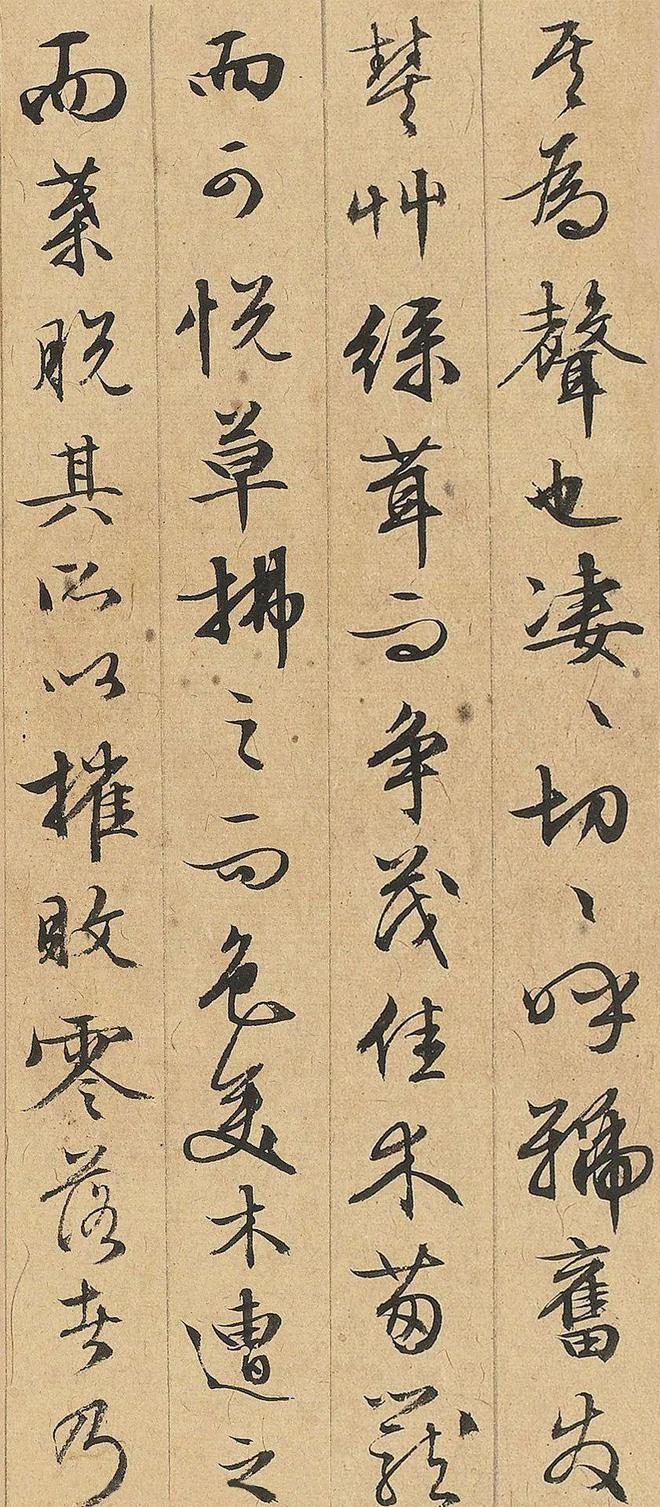 其為聲也凄〻切〻呼號奮發
豐艸綠茸而争茂佳木葱蘢
而可悅草拂之而色變木遭之
而葉脫其所以摧敗零落者乃